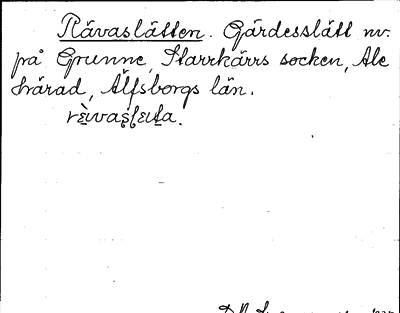 Rävaslätten. Gärdesslätt nv.
på Grunne, Starrkärrs socken, Ale
härad, Älfsborgs län.